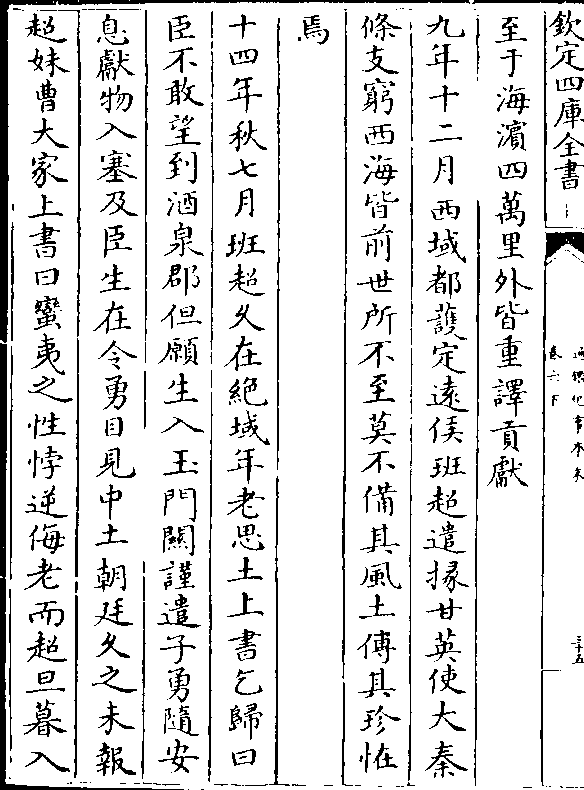 欽定四庫全書
通鑑紀事本末
卷六下
三十五
至于海濵四萬里外皆重譯貢獻
九年十二月西域都護定逺侯班超遣掾甘英使大秦
條支窮西海皆前世所不至莫不備其風土傳其珍怪
焉
十四年秋七月班超乆在絶域年老思土上書乞歸曰
臣不敢望到酒泉郡但願生入玉門闗謹遣子勇隨安
息獻物入塞及臣生在令勇目見中土朝廷乆之未報
超妹曹大家上書曰蠻夷之性悖逆侮老而超旦暮入